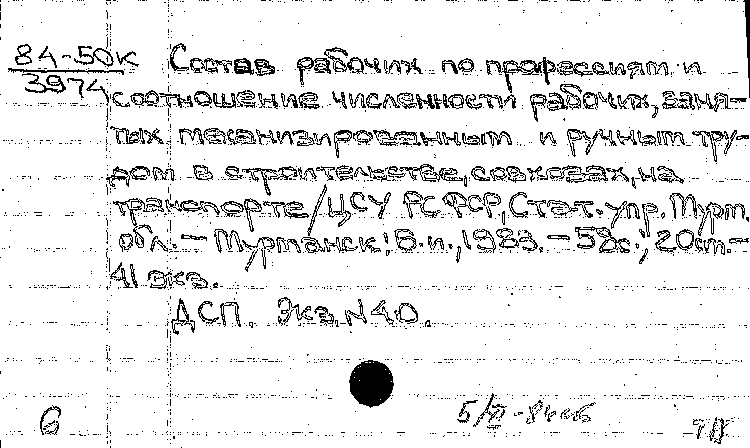 84-50к
3974
Состав рабочих по профессиям и
соотношение численности рабочих, заня-
тых механизированным и ручным тру-
дом в строительстве, совхозах, на
транспорте/ЦСУ РСФСР, Стат. упр. Мурм.
обл. — Мурманск: Б.и., 1983. — 58с.; 20см. —
41 экз.
ДСП. Экз. N 40.
6
5/VI-84